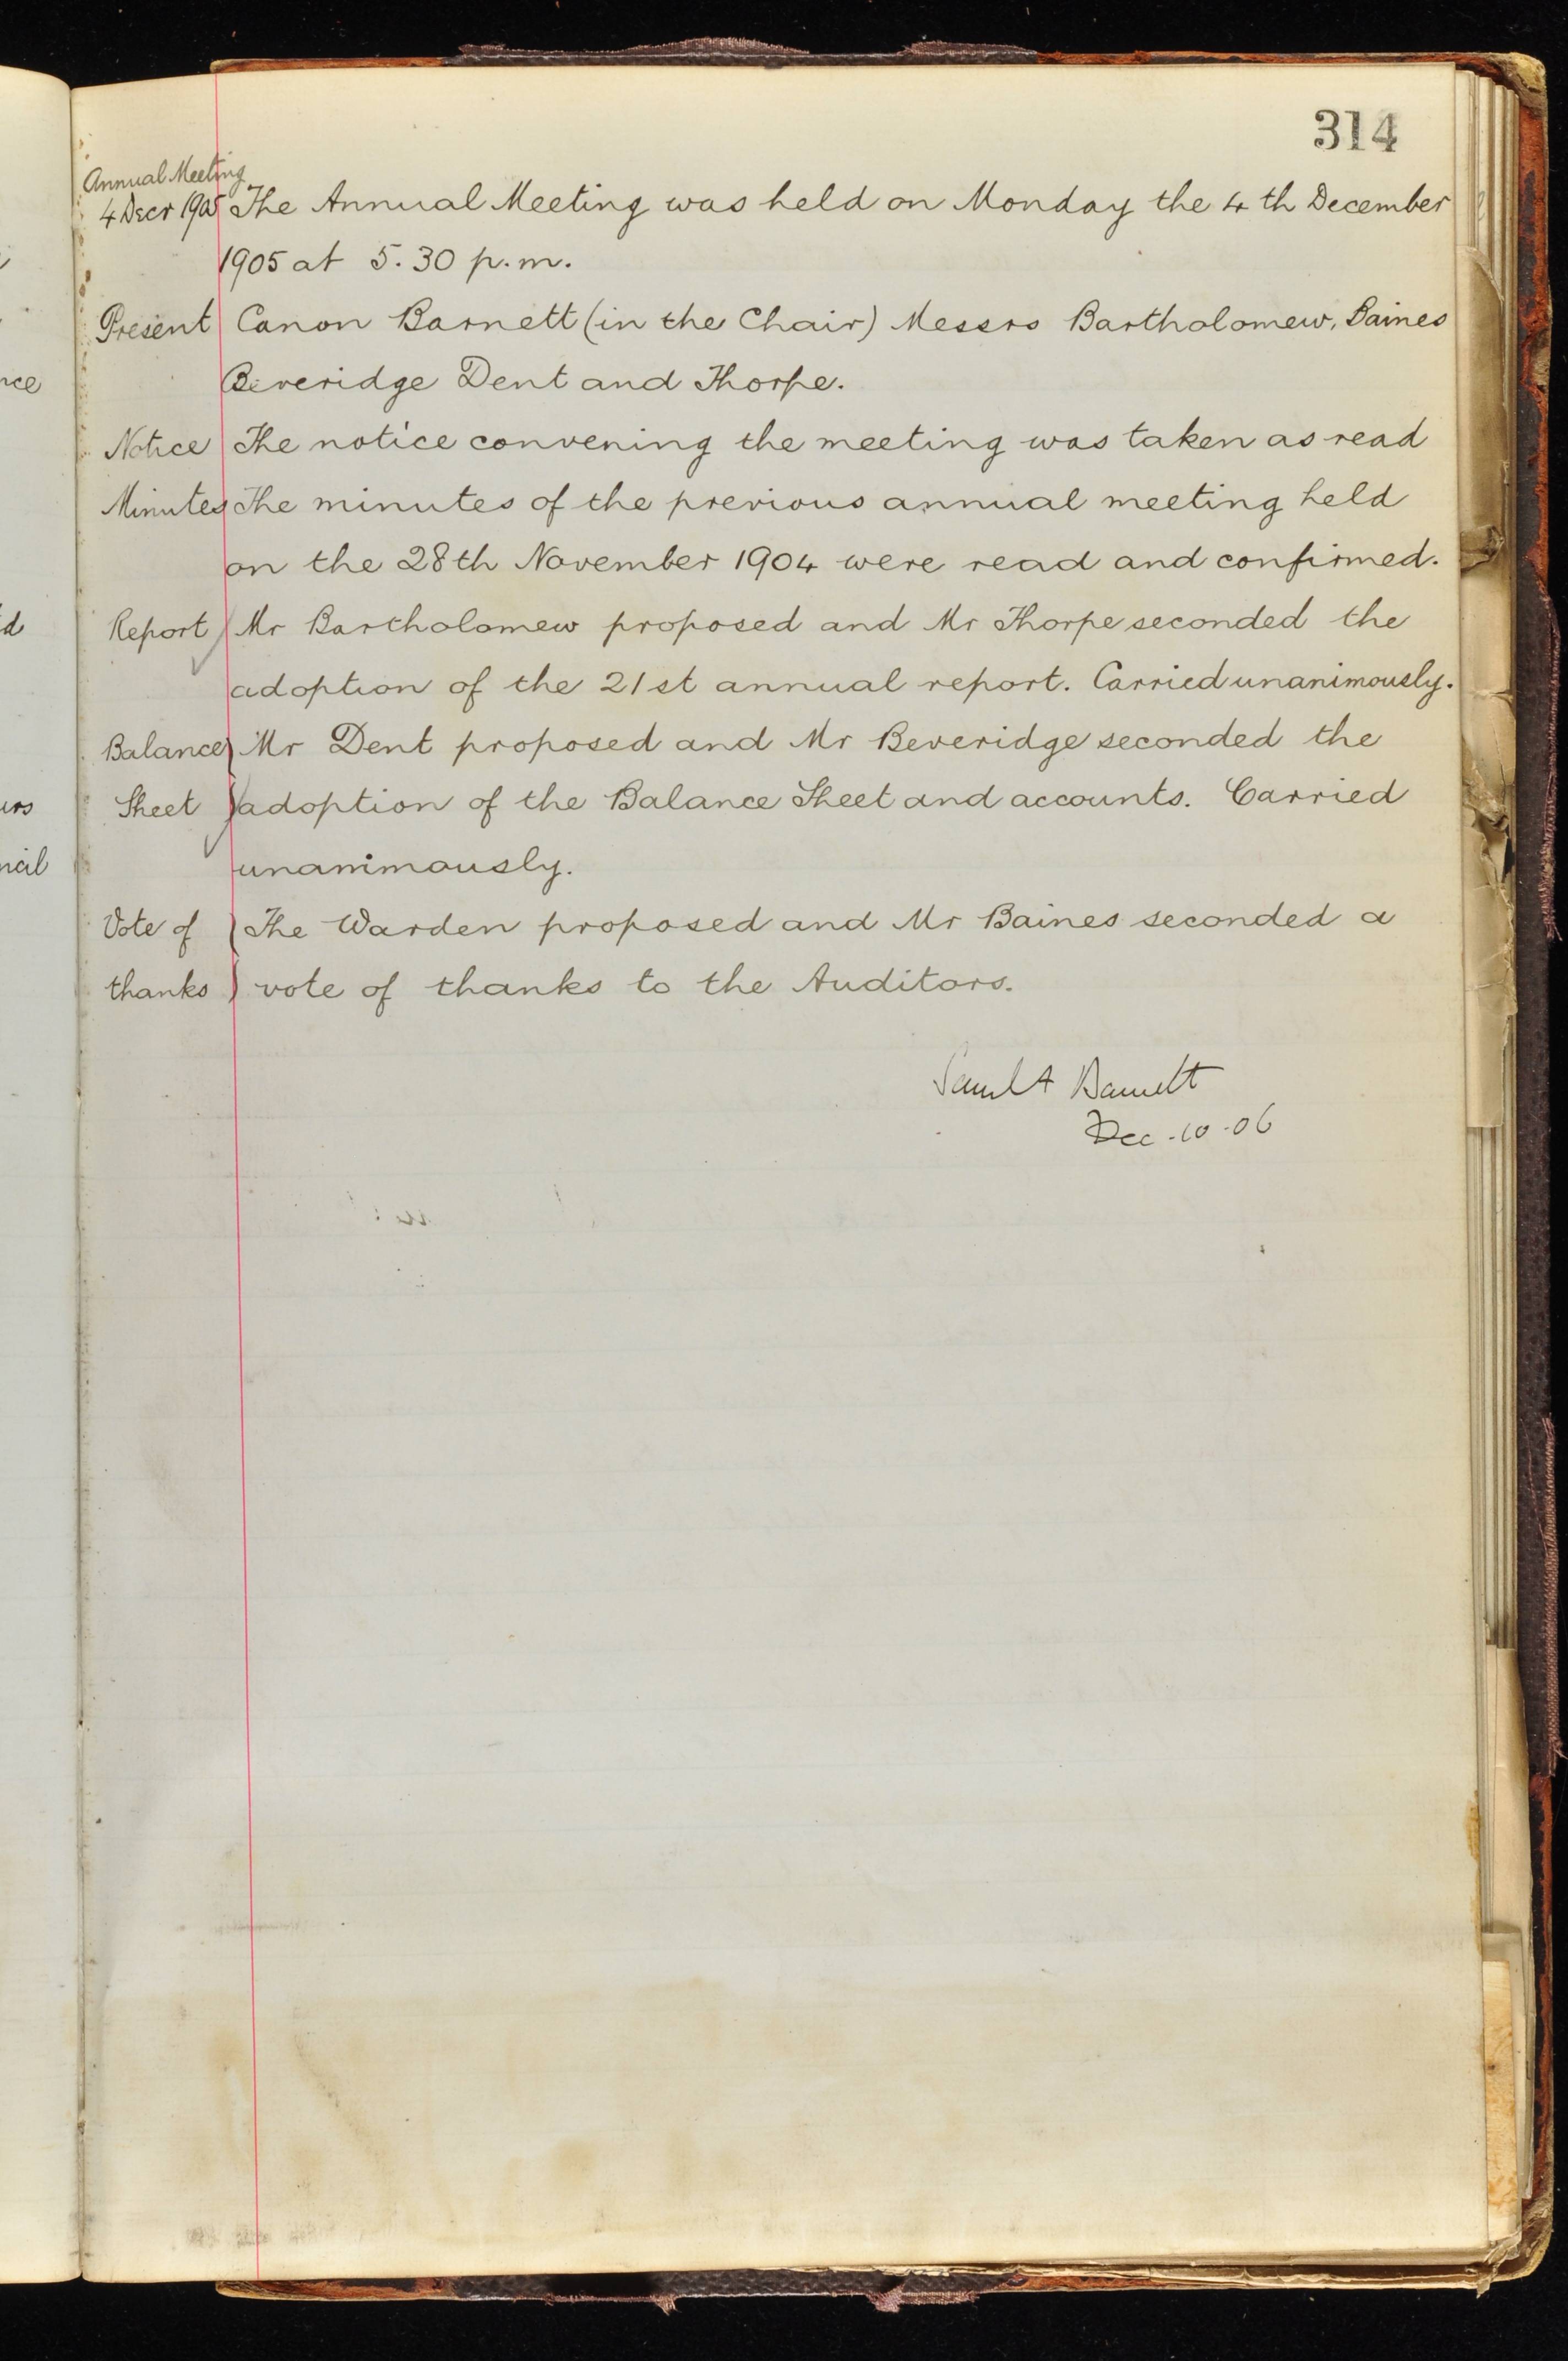 314
Annual Meeting
4 Decr 1905 The Annual Meeting was held on Monday the 4th December
1905 at 5.30 p.m.
Present Canon Barnett (in the Chair) Messrs Bartholomew, Baines
Beveridge Dent and Thorpe.
Notice The notice convening the meeting was taken as read
Minutes The minutes of the previous annual meeting held
on the 28th November 1904 were read and confirmed.
Report Mr Bartholomew proposed and Mr Thorpe seconded the
adoption of the 21st annual report. Carried unanimously.
Balance) Mr Dent proposed and Mr Beveridge seconded the
Sheet ) adoption of the Balance Sheet and accounts. Carried
unanimously.
Vote of ) The Warden proposed and Mr Baines seconded a
thanks ) vote of thanks to the Auditors.
Saml A Barnett
Dec. 10. 06